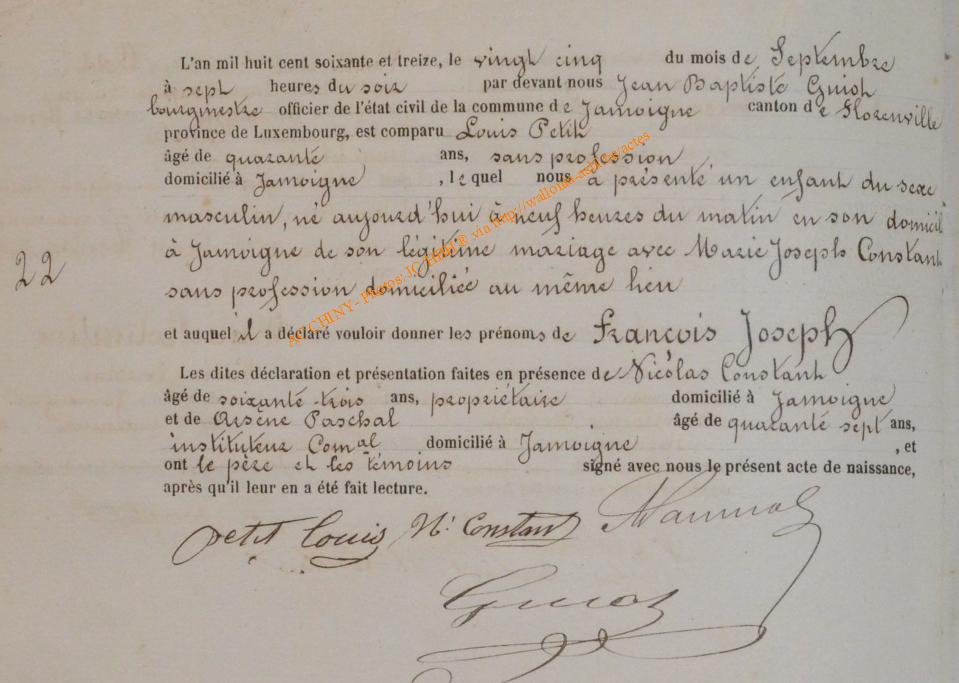 L'an mil huit cent soixante et treize, le vingt cinq du mois de Septembre
à sept heures du soir par devant nous Jean Baptiste Guiot
bourgmestre officier de l'état civil de la commune de Jamoigne canton de Florenville
province de Luxembourg, est comparu Louis Petit
âgé de quarante ans, sans profession
domicilié à Jamoigne, lequel nous a présenté un enfant du sexe
masculin, né aujourd'hui à neuf heures du matin en son domicil
22
à Jamoigne de son légitime mariage avec Marie Joseph Constant
sans profession domiciliée au même lieu
et auquel il a déclaré vouloir donner les prénoms de François Joseph
Les dites déclaration et présentation faites en présence de Nicolas Constant
âgé de soixante-trois ans, propriétaire domicilié à Jamoigne
et de Arsène Paschal âgé de quarante sept ans,
instituteur Comal domicilié à Jamoigne, et
ont le père et les témoins signé avec nous le présent acte de naissance,
après qu'il leur en a été fait lecture.
petit louis N. Constant
Guiot
CHINY - Photos: JC via http://wallonia-asbl.be/actes